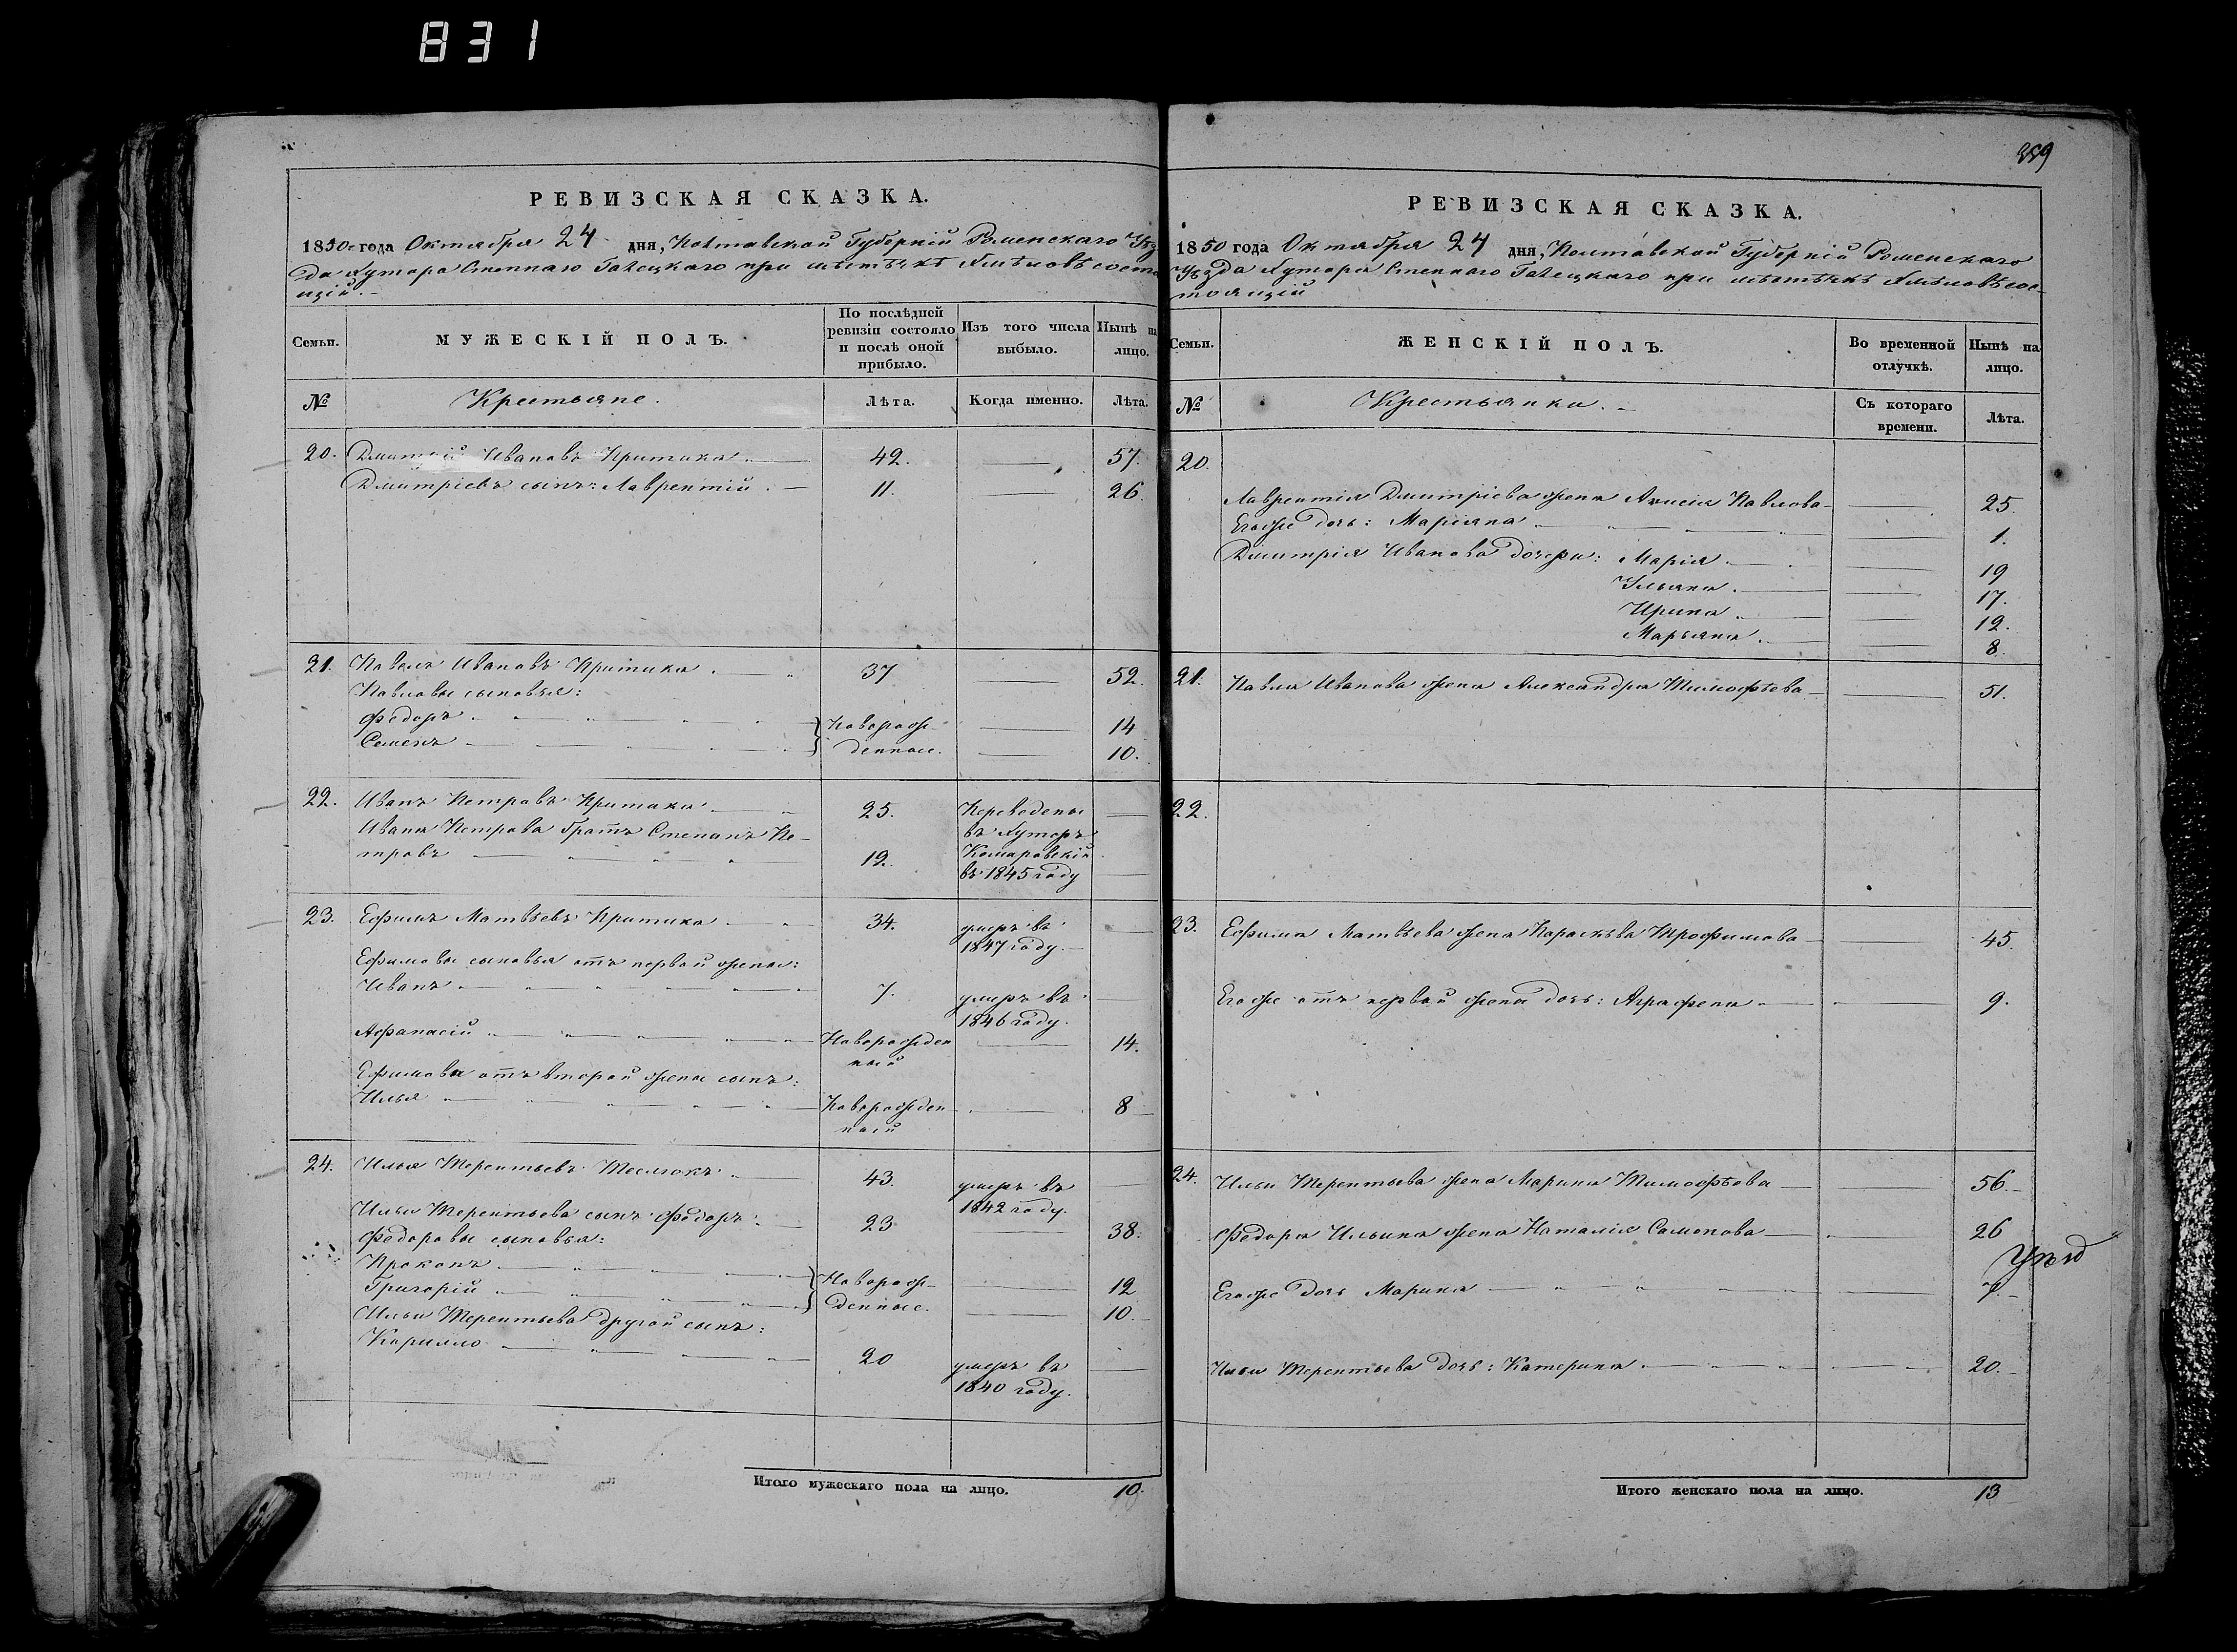 831
РЕВИЗСКАЯ СКАЗКА.
1850 года Октября 24 дня, Полтавской Губерніи Роменскаго Уѣз
да Хутора Степнаго Галецкаго при мѣстѣчкѣ Хмѣловѣ состо
щій.
Семьи.
МУЖЕСКІЙ ПОЛЪ.
По послѣдней ревизіи состояло и послѣ оной прибыло.
Изъ того числа выбыло.
Нынѣ на лицо.
№
Крестьяне.
Лѣта.
Когда именно.
Лѣта.
20. Дмитрій Ивановъ Притика 42. 57.
Дмитріевъ сынъ: Лаврентій 11. 26.
21. Павелъ Ивановъ Притика 37 52.
Павловы сыновья:
Федоръ Новорож- 14
Семенъ денные. 10.
22. Иванъ Петровъ Притика 25. Переведены
Ивана Петрова братъ Степанъ Пе- въ Хуторъ
тровъ 12. Комаровскій
въ 1845 году
23. Ефимъ Матвѣевъ Притика 34. умеръ въ
1847 году.
Ефимовы сыновья отъ первой жены:
Иванъ 7. умеръ въ
1846 году.
Афанасій Новорожден 14.
ный
Ефимова отъ второй жены сынъ:
Илья Новорожден 8
ный
24. Илья Терентьевъ Теслюкъ 43. умеръ въ
1842 году.
Ильи Терентьева сынъ Федоръ 23 38.
Федоровы сыновья:
Прокопъ Новорож- 12
Григорій денные. 10.
Ильи Терентьева другой сынъ:
Кирилло 20 умеръ въ
1840 году.
Итого мужескаго пола на лицо. 10.
359
РЕВИЗСКАЯ СКАЗКА.
1850 года Октября 24 дня, Полтавской Губерніи Роменскаго
Уѣзда Хутора Степнаго Галецкаго при мѣстѣчкѣ Хмѣловѣ сос-
тоящій
Семьи.
ЖЕНСКІЙ ПОЛЪ.
Во временной отлучкѣ.
Нынѣ на лицо.
№
Крестьянки.
Съ котораго времени.
Лѣта.
20.
Лаврентія Дмитріева жена Анисія Павлова 25.
Егоже дочь: Маріяна 1.
Дмитрія Иванова дочери: Марія 19
Ульяна 17.
Ирина 12.
Марьяна 8.
21. Павла Иванова жена Александра Тимофѣева 51.
22.
23. Ефима Матвѣева жена Параскѣва Трофимова 45.
Егоже отъ первой жены дочь: Аграфена 9.
24. Ильи Терентьева жена Марина Тимофѣева 56.
Федора Ильина жена Наталія Самонова 26
Егоже дочь Марина 7.
Ильи Терентьева дочь: Катерина 20.
Итого женскаго пола на лицо. 13